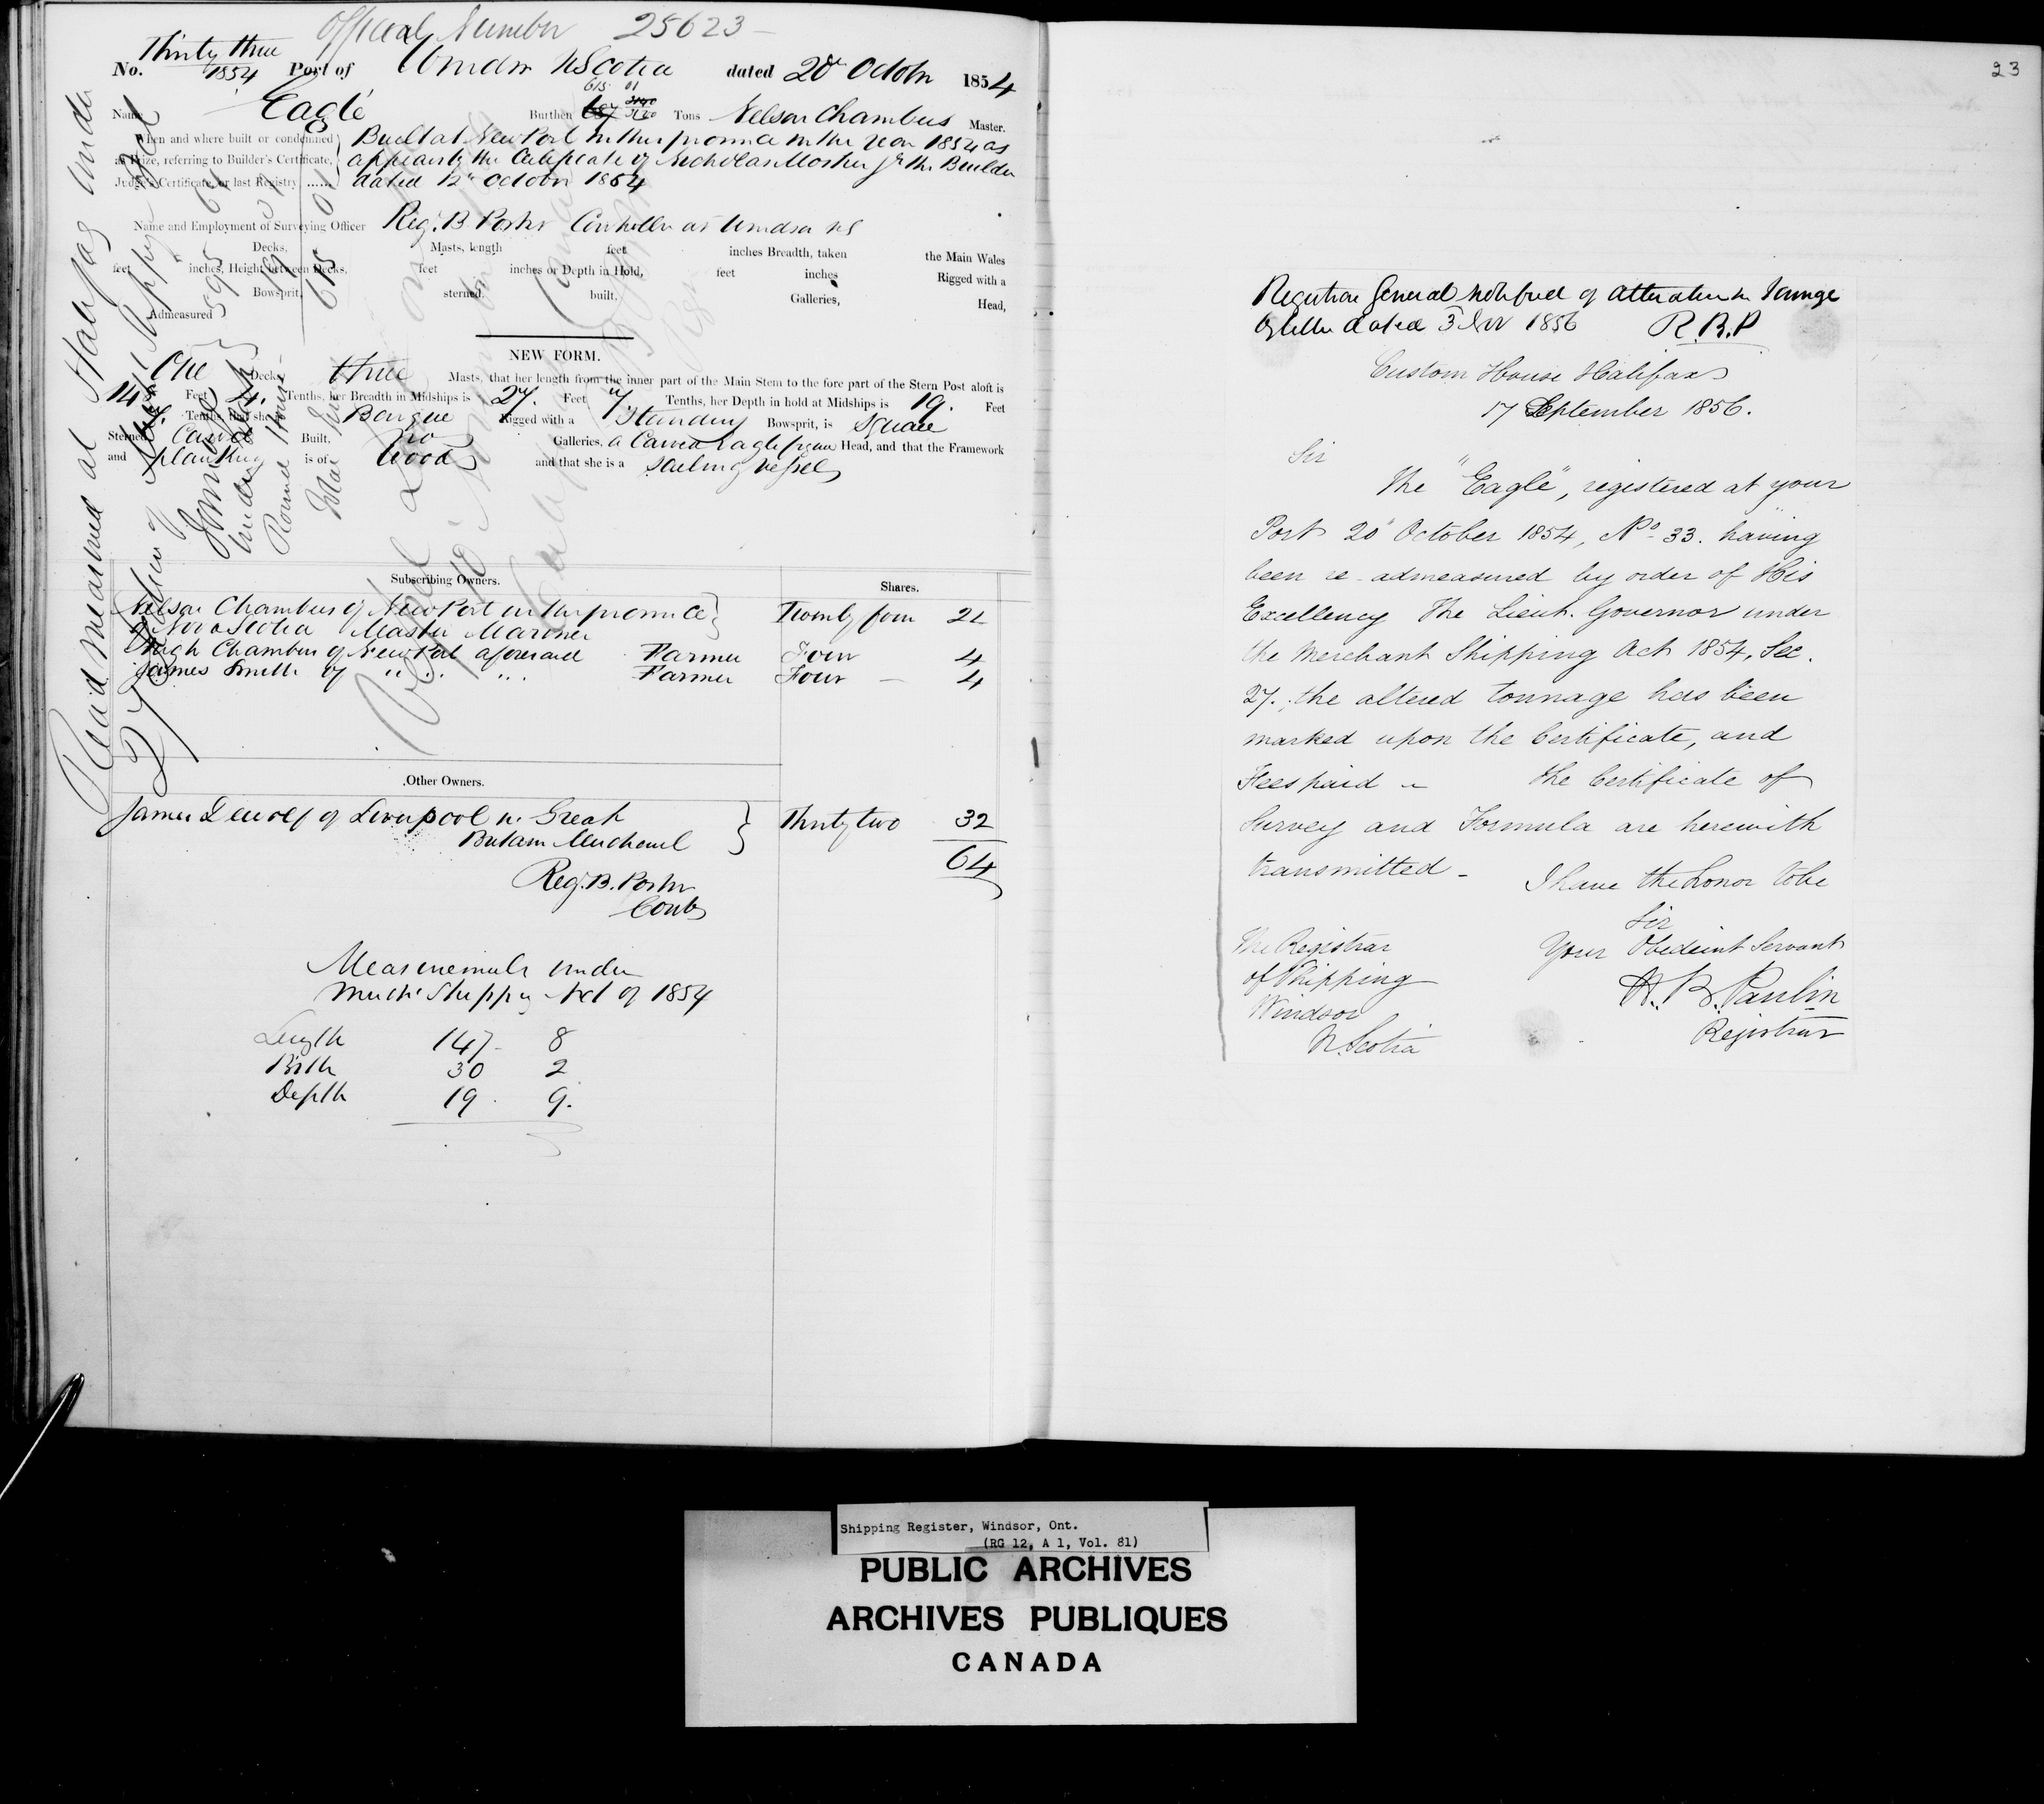 Official Number 25623
No. Thirty three 1854 Port of Windsor N Scotia dated 20th October 1854
615 01
Name Eagle Burthen Tons Nelson Chambers Master.
When and where built or condemned Built at New Port in this province in the year 1854 as
as Prize, referring to Builder's Certificate, appears by the Certificate of Nicholas Mosher Jr the Builder
Judge's Certificate, or last Registry ...... dated 12th October 1854
Name and Employment of Surveying Officer Reg. B. Porter Controller at Windsor NS
Decks, Masts, length feet inches Breadth, taken the Main Wales
feet inches, Height between Decks, feet inches or Depth in Hold, feet inches Rigged with a
Bowsprit, sterned, built, Galleries, Head,
Admeasured
NEW FORM.
One Decks three Masts, that her length from the inner part of the Main Stem to the fore part of the Stern Post aloft is
Feet 4. Tenths, her Breadth in Midships is 27. Feet 7 Tenths, her Depth in hold at Midships is 19. Feet
Tenths, that she is Barque Rigged with a Standing Bowsprit, is Square
Sterned Carvel Built, no Galleries, a Carved Eagle figure Head, and that the Framework
and planking is of Wood and that she is a sailing vessel
Read measured at Halifax under
Subscribing Owners. Shares.
Nelson Chambers of New Port in the province Twenty four 24
of Nova Scotia Master Mariner
Hugh Chambers of New Port aforesaid Farmer Four 4
James Smith of " " " Farmer Four — 4
Other Owners.
James Dewolf of Liverpool in Great Thirty two 32
Britain Merchant
64
Reg. B. Porter
Contr
Measurements under
Mercht Shipping Act of 1854
Length 147 8
Brdth 30 2
Depth 19. 9.
23
Registrar General notified of alteration in Tonnage
by letter dated 3 Nov 1856 R.B.P
Custom House Halifax
17 September 1856.
Sir
The "Eagle", registered at your
Port 20th October 1854, No 33. having
been re-admeasured by order of His
Excellency The Lieut. Governor under
the Merchant Shipping Act 1854, Sec.
27., the altered tonnage has been
marked upon the Certificate, and
Fees paid — the Certificate of
Survey and Formula are herewith
transmitted –
I have the honor to be
Sir
Your Obedeint Servant
H. B. Paulin
Registrar
The Registrar
of Shipping
Windsor
N. Scotia
Shipping Register, Windsor, Ont.
(RG 12, A 1, Vol. 81)
PUBLIC ARCHIVES
ARCHIVES PUBLIQUES
CANADA